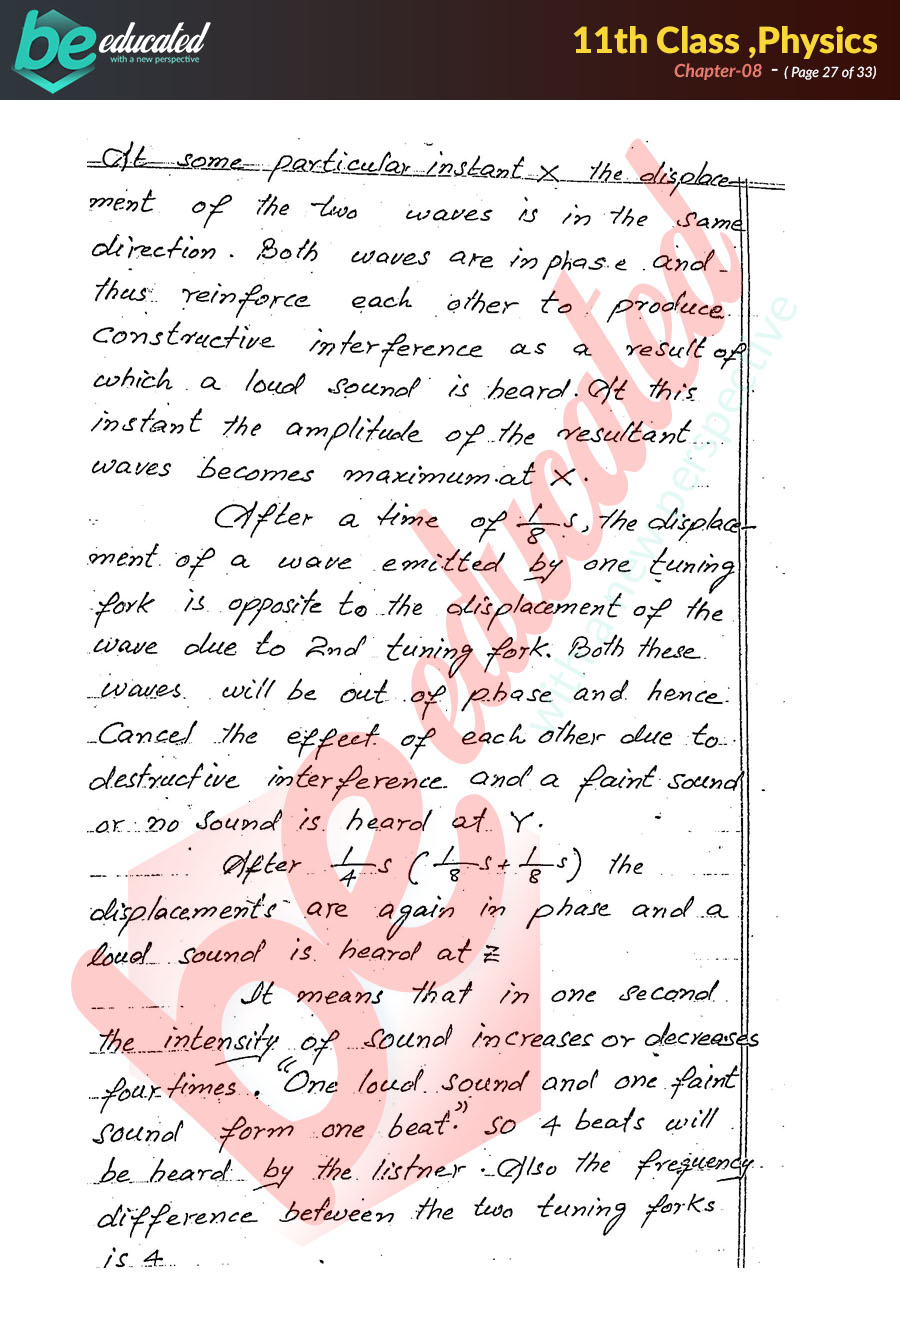 be educated
with a new perspective
11th Class ,Physics
Chapter-08 - ( Page 27 of 33)
At some particular instant X the displace-
ment of the two waves is in the same
direction. Both waves are in phase and
thus reinforce each other to produce
Constructive interference as a result of
which a loud sound is heard. At this
instant the amplitude of the resultant
waves becomes maximum at X.
After a time of 1/8 s, the displace-
ment of a wave emitted by one tuning
fork is opposite to the displacement of the
wave due to 2nd tuning fork. Both these
waves will be out of phase and hence
Cancel the effect of each other due to
destructive interference and a faint sound
or no sound is heard at Y.
After 1/4 s (1/8 s + 1/8 s) the
displacements are again in phase and a
loud sound is heard at Z
It means that in one second
the intensity of sound increases or decreases
four times. "One loud sound and one faint
sound form one beat." so 4 beats will
be heard by the listner. Also the frequency
difference between the two tuning forks
is 4
be educated
with a new perspective